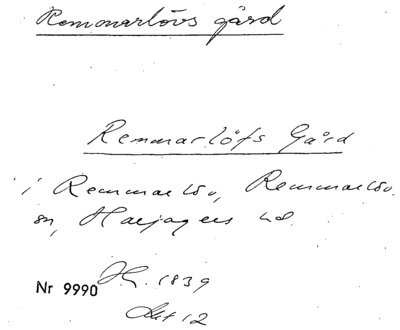 Remmarlövs gård
Remmarlöfs Gård
i Remmarlöv, Remmarlöv
sn, Harjagers hd.
H. 1839
Nr 9990
Akt 12